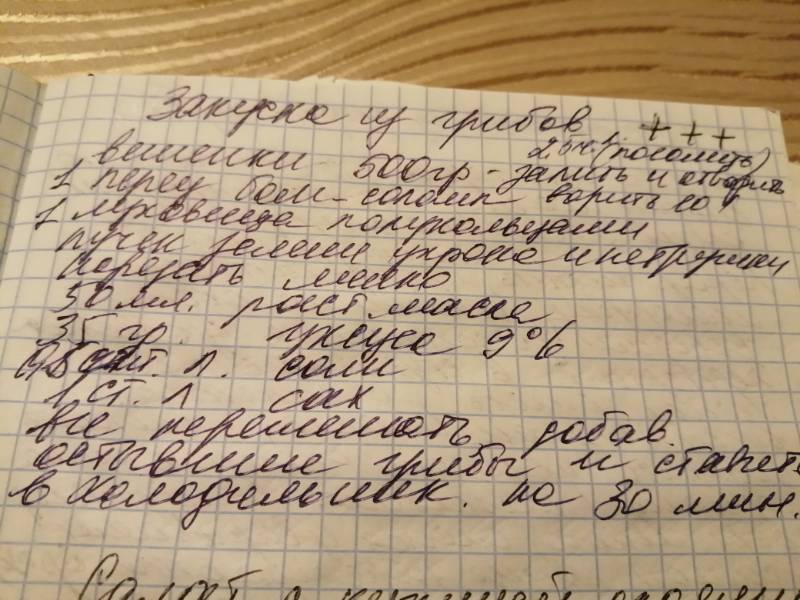 Закуска из грибов +++
2,5 ч. л. (посолить)
вешенки 500гр - залить и отварить
1 перец бол- солом варить 10
1 луковица полукольцами
пучек зелени укропа и петрушки
порезать мелко
50 мл. раст масла
35 гр. уксуса 9%
0,5 ст. л. соли
1 ст. л сах
все перемешать, добав.
остывшие грибы и ставить
в холодильник. на 30 мин.
Салат с